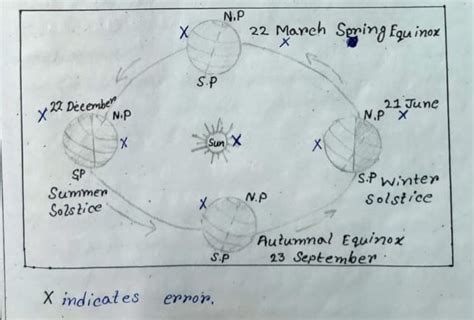 N.P
22 March Spring Equinox
X
X
S.P
X 22 December
N.P
21 June
N.P X
X
Sun X
X
SP
Summer
Solstice
S.P Winter
Solstice
X
N.P
Autumnal Equinox
S.P
23 September.
X indicates error.